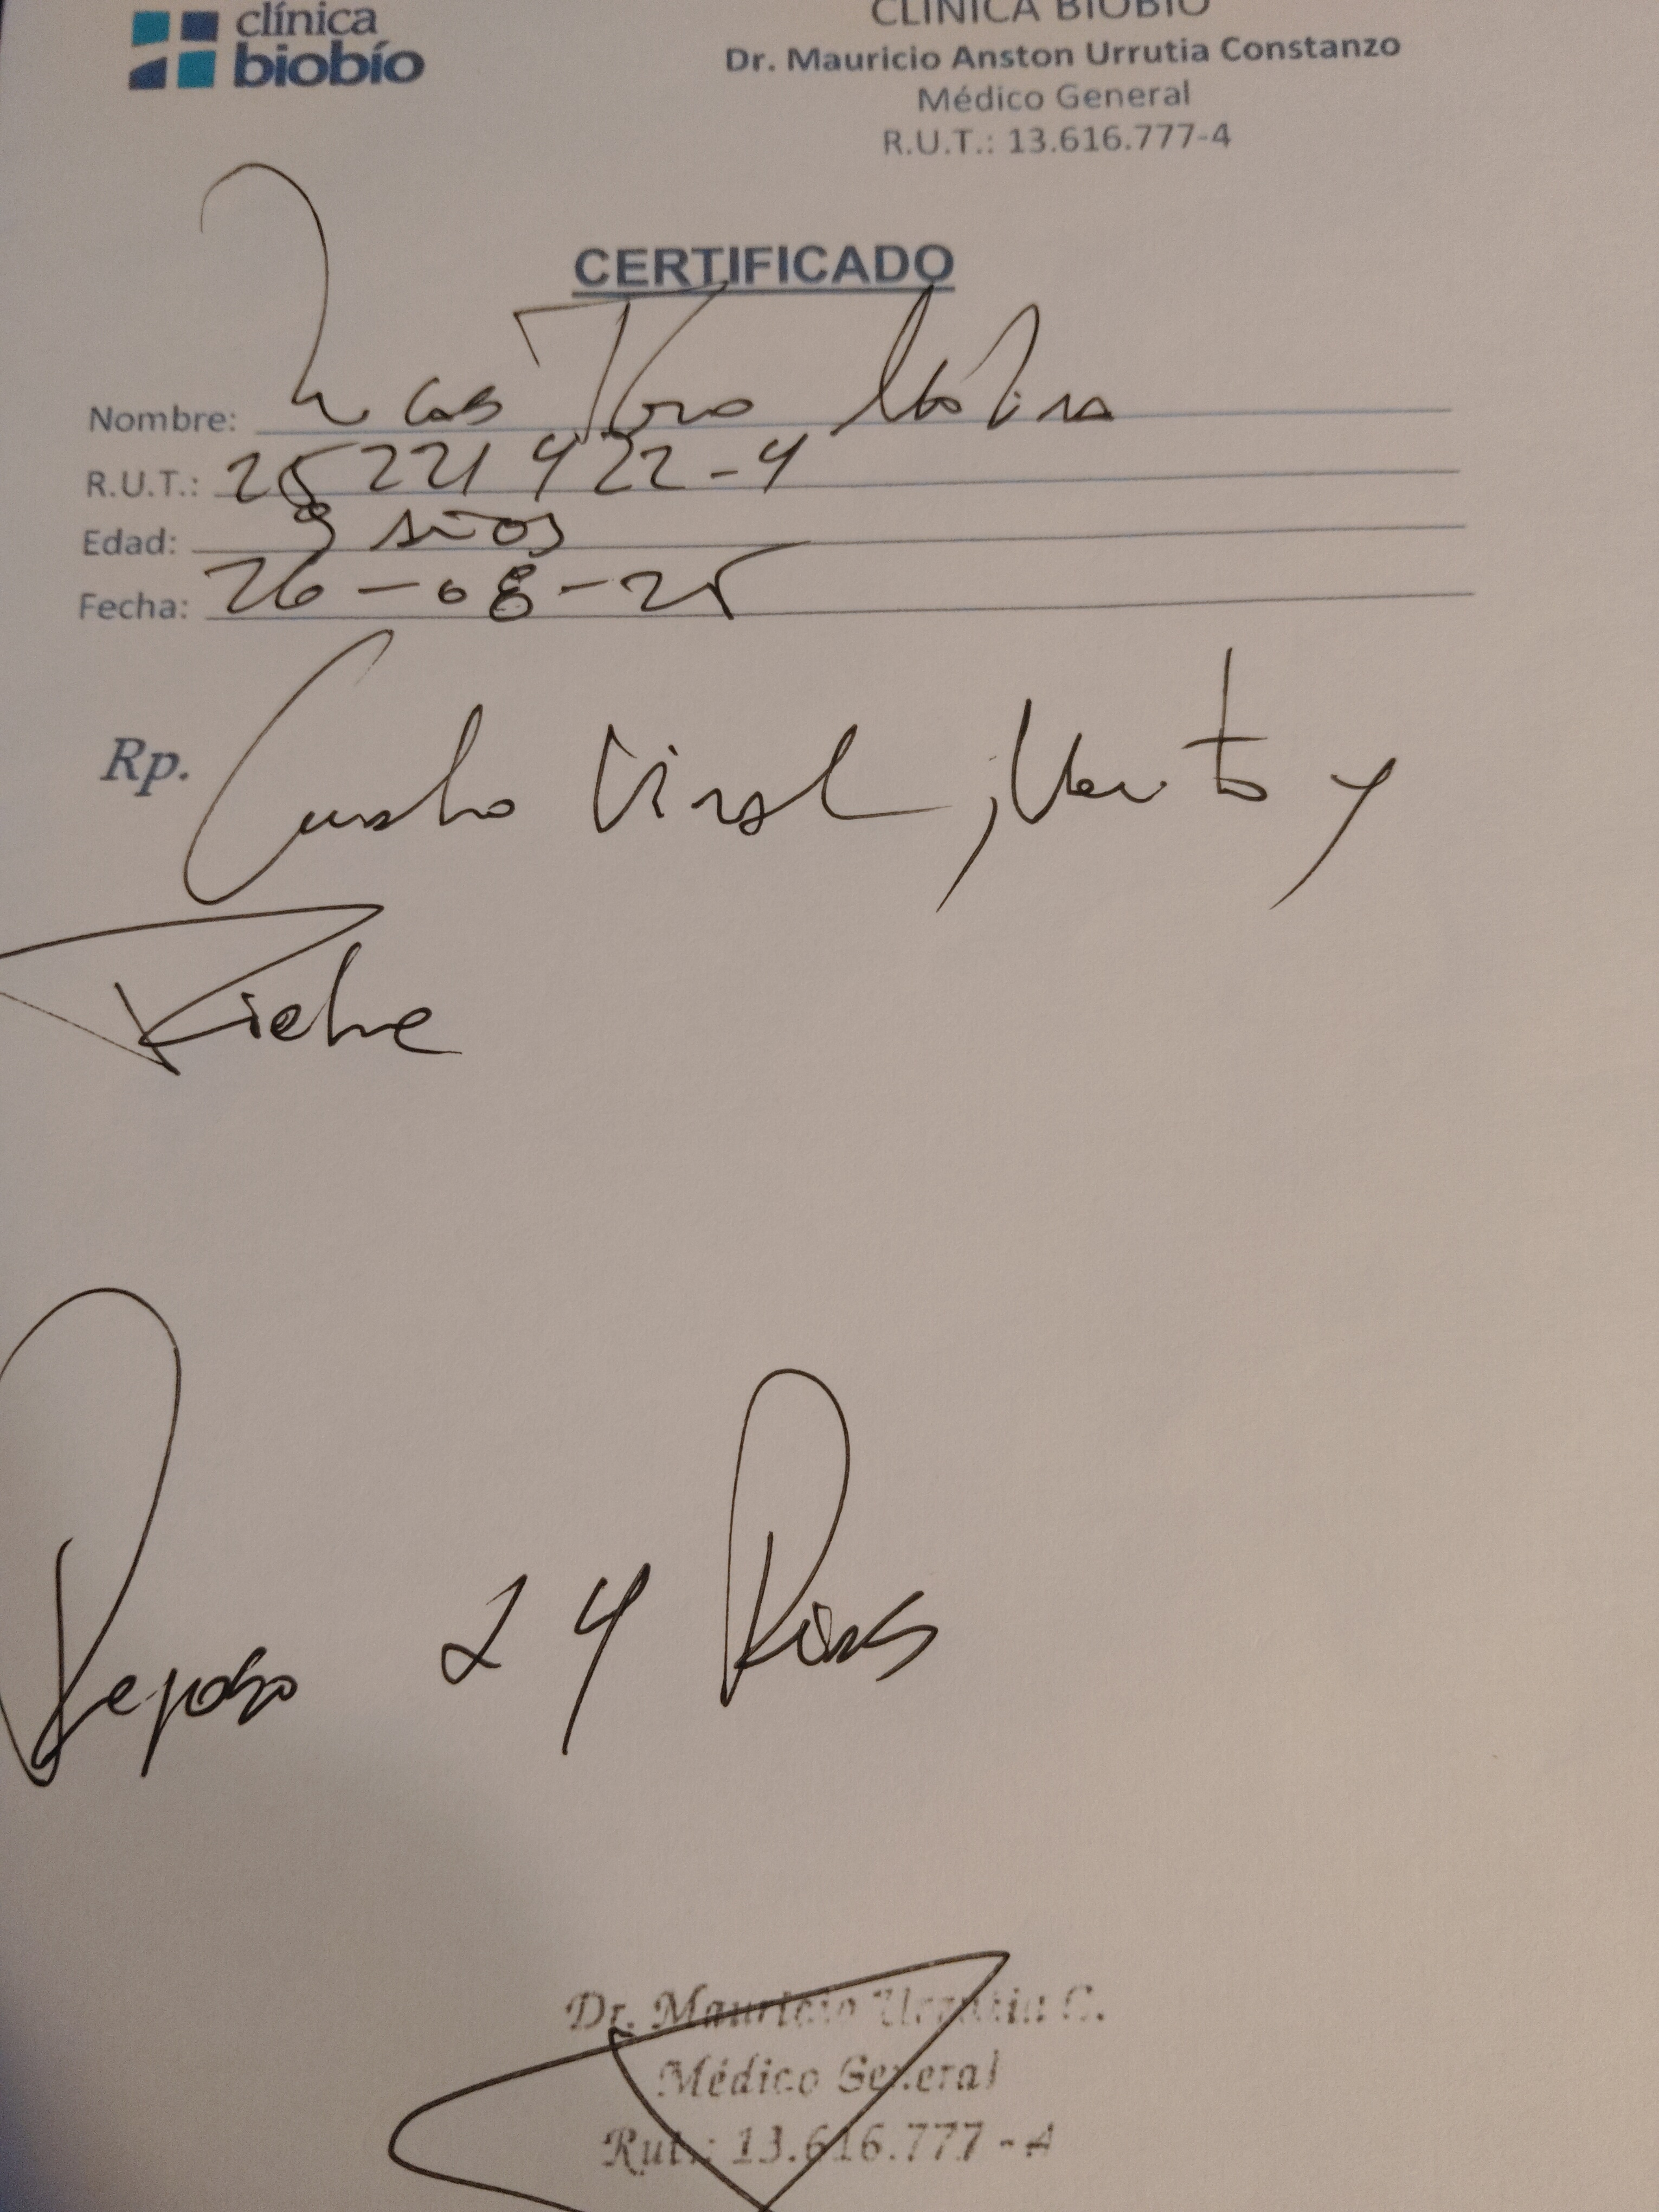 clínica
biobío
CLINICA BIOBIO
Dr. Mauricio Anston Urrutia Constanzo
Médico General
R.U.T.: 13.616.777-4
CERTIFICADO
Nombre: Lucas Toro Molina
R.U.T.: 25221422-4
Edad: 9 años
Fecha: 26-08-25
Rp. Cuadro Viral, Vomito y
Fiebre
Reposo 24 Horas
Dr. Mauricio Urrutia C.
Médico General
Rut.: 13.616.777-4